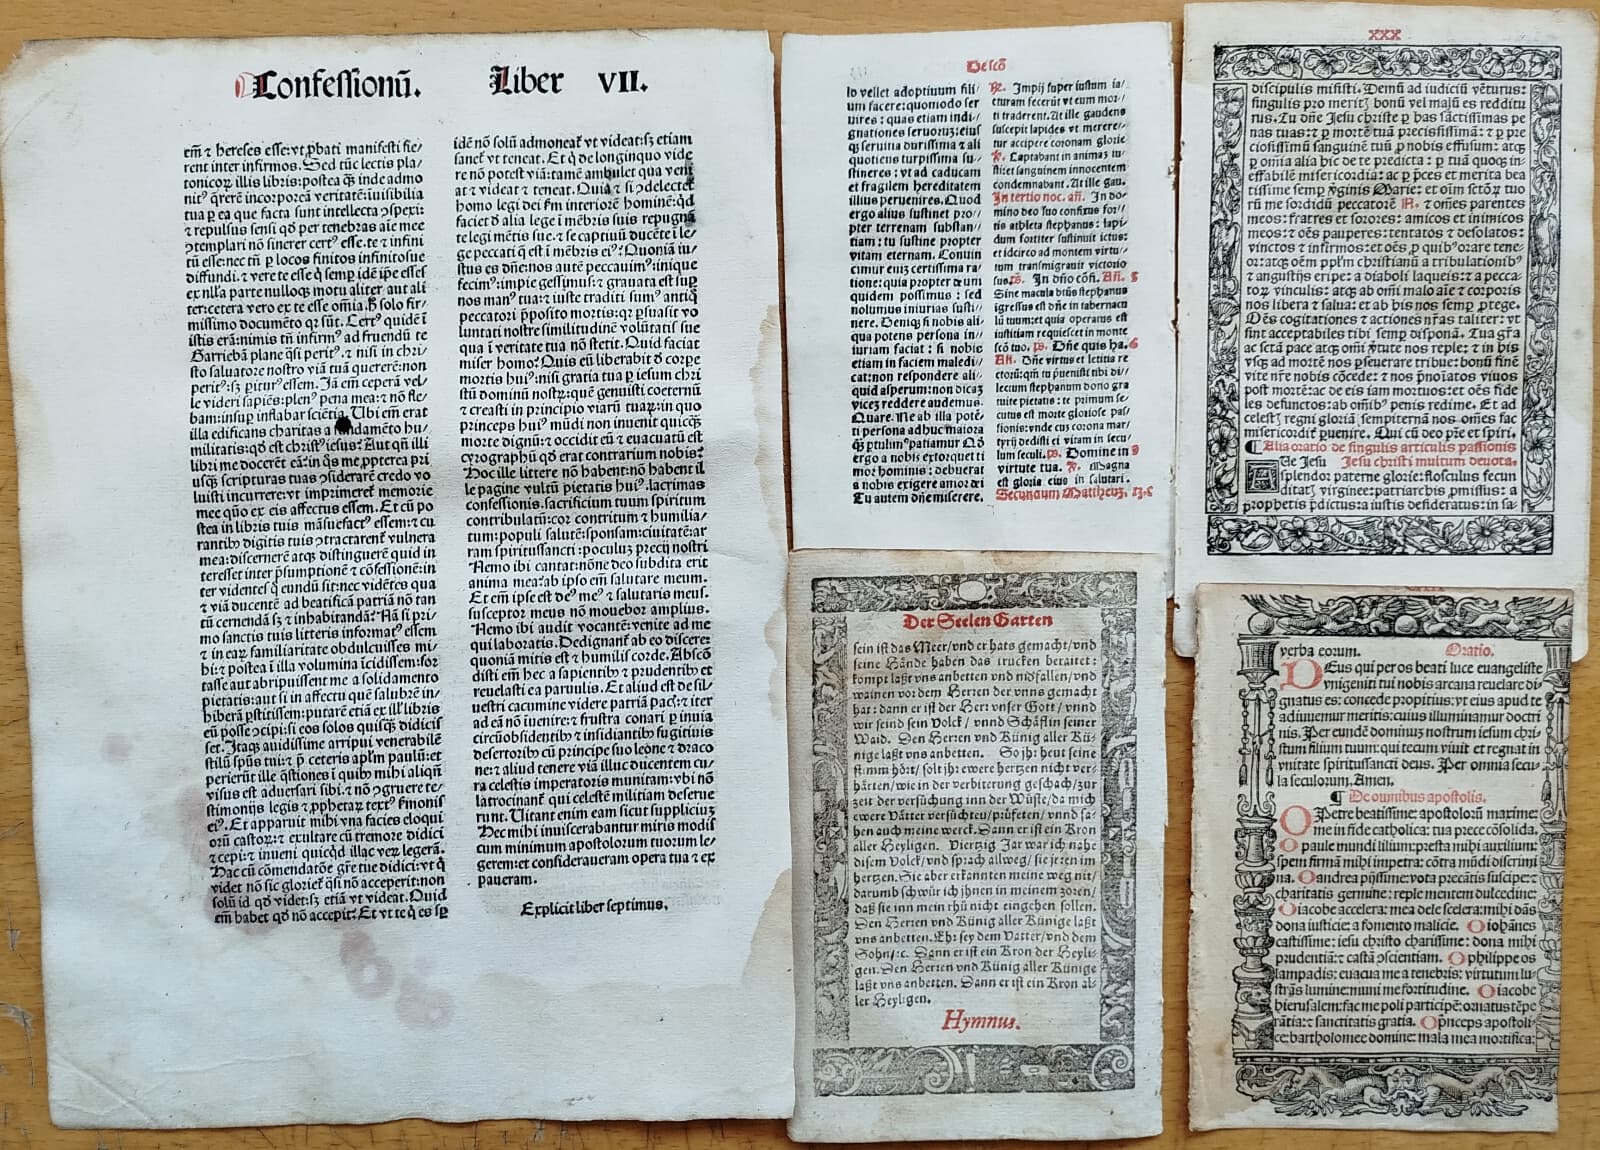 Confessionū. Liber VII.
em̄ ⁊ hereses esse: vt ꝓbati manifesti fie/
rent inter infirmos. Sed tūc lectis pla/
tonicoꝝ illis libris: postea qꝫ inde admo
nitꝰ q̄rere incorporeā veritatē: iuisibilia
tua ꝑ ea que facta sunt intellecta ↄspexi:
⁊ repulsus sensi qd̄ per tenebras aīe mee
ↄtemplari nō sinerer certꝰ esse. te ⁊ infini
tū esse: nec tn̄ ꝑ locos finitos infinitosue
diffundi. ⁊ vere te esse q̄ semp idē ip̄e esses
ex nll̄a parte nulloqꝫ motu aliter aut ali
ter: cetera vero ex te esse om̄ia.
missimo documēto qꝛ sūt. Certꝰ quidē ī
istis erā: nimis tn̄ infirmꝰ ad fruendū te
Garriebā plane q̄si peritꝰ. ⁊ nisi in chri/
sto saluatore nostro viā tuā quererē: non
peritꝰ: sꝫ ꝑiturꝰ essem. Jā em̄ ceperā vel/
le videri sapiēs: plenꝰ pena mea: ⁊ nō fle/
bam: insuꝑ inflabar sciētia. Ubi em̄ erat
illa edificans charitas a fundamēto hu/
militatis: qd̄ est christꝰ iesus? Aut qn̄ illi
libri me docerēt eā: in q̄s me ꝓpterea pri
usqꝫ scripturas tuas ↄsiderarē credo vo
luisti incurrere: vt imprimeret memorie
mee quō ex eis affectus essem. Et cū po
stea in libris tuis māsuefactꝰ essem: ⁊ cu
rantibꝫ digitis tuis ↄtractarent vulnera
mea: discernerē atqꝫ distinguerē quid in
teresset inter p̄sumptionē ⁊ cōfessionē: in
ter videntes q̄ eundū sit: nec vidētes qua
⁊ viā ducentē ad beatificā patriā nō tan
tū cernendā sꝫ ⁊ inhabitandā. Nā si pri/
mo sanctis tuis litteris informatꝰ essem
⁊ in eaꝝ familiaritate obdulcuisses mi/
hi: ⁊ postea ī illa volumina īcidissem: for
tasse aut abripuissent me a solidamento
pietatis: aut si in affectu quē salubrē in/
hiberā ꝑstitissem: putarē etiā ex ill̄ libris
eū posse ↄcipi: si eos solos quisqꝫ didicis
set. Itaqꝫ auidissime arripui venerabilē
stilū spūs tui: ⁊ p̄ ceteris apl̄m paulū: et
perierūt ille q̄stiones ī quibꝫ mihi aliqn̄
visus est aduersari sibi: ⁊ nō ↄgruere te/
stimonijs legis ⁊ ꝓphetaꝝ textꝰ sermonis
eiꝰ. Et apparuit mihi vna facies eloqui
orū castoꝝ: ⁊ exultare cū tremore didici
⁊ cepi: ⁊ inueni quicqd̄ illac veꝝ legerā.
hac cū comendatōe gr̄e tue didici: vt q̄
videt nō sic glorief q̄si nō acceperit: non
solū id qd̄ videt: sꝫ etiā vt videat. Quid
em̄ habet qd̄ nō accepit? Et vt te q̄ es sꝑ
idē nō solū admoneat vt videat: sꝫ etiam
sanet vt teneat. Et q̄ de longinquo vide
re nō potest viā: tamē ambulet qua veni
at ⁊ videat ⁊ teneat. Quia ⁊ si ↄdelectet
homo legi dei scd̄m interiorē hominē: qd̄
faciet d̄ alia lege ī mēbris suis repugnā
te legi mētis sue. ⁊ se captiuū ducēte ī le/
ge peccati q̄ est ī mēbris eiꝰ? Quoniā iu/
stus es dn̄e: nos autē peccauimꝰ: inique
fecimꝰ: impie gessimꝰ: ⁊ grauata est suꝑ
nos manꝰ tua: ⁊ iuste traditi sumꝰ antiq̄
peccatori p̄posito mortis: qꝛ ꝑsuasit vo
luntati nostre similitudinē volūtatis sue
qua ī veritate tua nō stetit. Quid faciat
miser homo? Quis eū liberabit d̄ corpe
mortis huiꝰ: nisi gratia tua ꝑ iesum chri
stū dominū nostꝝ: quē genuisti coeternū
⁊ creasti in principio viarū tuaꝝ: in quo
princeps huiꝰ mūdi non inuenit quicqꝫ
morte dignū: ⁊ occidit eū ⁊ euacuatū est
cyrographū qd̄ erat contrarium nobis?
Hoc ille littere nō habent: nō habent il
le pagine vultū pietatis huiꝰ. lacrimas
confessionis. sacrificium tuum spiritum
contribulatū: cor contritum ⁊ humilia/
tum: populi salutē: sponsam: ciuitatē: ar
ram spiritussancti: poculuꝫ precij nostri
Nemo ibi cantat: nōne deo subdita erit
anima mea: ab ipso em̄ salutare meum.
Et em̄ ipse est deꝰ meꝰ ⁊ salutaris meus.
susceptor meus nō mouebor amplius.
Nemo ibi audit vocantē: venite ad me
qui laboratis. Dedignant̄ ab eo discere:
quoniā mitis est ⁊ humilis corde. Abscō
disti em̄ hec a sapientibꝰ ⁊ prudentibꝰ et
reuelasti ea paruulis. Et aliud est de sil/
uestri cacumine videre patriā pacꝭ: ⁊ iter
ad eā nō īuenire: ⁊ frustra conari ꝑ inuia
circūobsidentibꝫ ⁊ insidiantibꝫ fugitiuis
desertoribꝫ cū principe suo leōne ⁊ draco
ne: ⁊ aliud tenere viā illuc ducentem cu/
ra celestis imperatoris munitam: vbi nō
latrocinant̄ qui celestē militiam deserue
runt. Uitant enim eam sicut suppliciuꝫ
Hec mihi inuiscerabantur miris modis
cum minimum apostolorum tuorum le/
gerem: et consideraueram opera tua ⁊ ex
paueram.
Explicit liber septimus.
De scō
lo vellet adoptiuum fili/
um facere: quomodo ser
uires: quas etiam indi/
gnationes seruoruꝫ: eius
qꝫ seruitia durissima ⁊ ali
quotiens turpissima su/
stineres: vt ad caducam
et fragilem hereditatem
illius peruenires. Quod
ergo alius sustinet pro/
pter terrenam substan/
tiam: tu sustine propter
vitam eternam. Conuin
cimur enīꝫ certissima ra/
tione: quia propter deuꝫ
quidem possimus: sed
nolumus iniurias susti/
nere. Deniqꝫ si nobis ali/
qua potens persona in/
iuriam faciat: si nobis
etiam in faciem maledi/
cat: non respondere ali/
quid asperum: non dicaꝫ
viceꝫ reddere audemus.
Quare. Ne ab illa potē/
ti persona adhuc maiora
qꝫ ꝑtulimꝰ patiamur Qd̄
ergo a nobis extorquet ti
mor hominis: debuerat
a nobis exigere amor dei
Tu autem dn̄e miserere.
℟. Impij super iustum ia/
cturam fecerūt vt eum mor/
ti traderent. At ille gaudens
suscepit lapides vt merere/
tur accipere coronam glorie
℣. Captabant in animas iu/
sti: et sanguinem innocentem
condemnabant. At ille gau.
In tertio noc. añ. In do/
mino deo suo confixus for/
tis athleta stephanus: lapi/
dum fortiter sustinuit ictus:
et idcirco ad montem virtu/
tum transmigrauit victorio
sus. ps. In dn̄o cōfi. Añ. 5
Sine macula btūs stephanus
īgressus est dn̄e in tabernacu
lū tuum: et quia operatus est
iustitiam requiescet in monte
scō tuo. ps. Dn̄e quis ha. 6
Añ. Dn̄e virtus et letitia re
ctorū: qm̄ tu p̄uenisti tibi di/
lectum stephanum dono gra
tuite pietatis: te primum se/
cutus est morte gloriose pas/
sionis: vnde cuꝫ corona mar/
tyrij dedisti ei vitam in secu/
lum seculi. ps. Domine in 9
virtute tua. ℣. Magna
est gloria eius in salutari.
Secundum Mattheuꝫ. 23. c
XXX
discipulis misisti. Demū ad iudiciū vēturus:
singulis pro meritꝭ bonū vel malū es redditu
rus. Tu dn̄e Jesu christe ꝑ has sāctissimas pe
nas tuas: ⁊ ꝑ mortē tuā precisissimā: ⁊ ꝑ pre
ciosissimū sanguinē tuū ꝓ nobis effusum: atqꝫ
ꝑ om̄ia alia hic de te predicta: ꝑ tuā quoqꝫ in/
effabilē misericordia: ac ꝑ p̄ces et merita bea
tissime semꝑ v̄ginis Marie: et om̄ū sctōꝝ tuo
rū me sordidū peccatorē N. ⁊ om̄es parentes
meos: fratres et sorores: amicos et inimicos
meos: ⁊ oēs pauperes: tentatos ⁊ desolatos:
vinctos ⁊ infirmos: et oēs ꝓ quibꝰ orare tene/
or: atqꝫ oēm ppl̄m christianū a tribulationibꝰ
⁊ angustijs eripe: a diaboli laqueis: ⁊ a pecca/
toꝝ vinculis: atqꝫ ab om̄i malo aīe ⁊ corporis
nos libera ⁊ salua: et ab his nos semꝑ ꝓtege.
Oēs cogitationes ⁊ actiones nr̄as taliter: vt
sint acceptabiles tibi semꝑ disponā. Tua gr̄a
ac sctā pace atqꝫ om̄i v̄tute nos reple: ⁊ in his
vsqꝫ ad mortē nos ꝑseuerare tribue: bonū finē
vite nr̄e nobis cōcede: ⁊ nos p̄noīatos viuos
post mortē: ac de eis iam mortuos: et oēs fide
les defunctos: ab om̄ibꝰ penis redime. Et ad
celestꝭ regni gloriā sempiternā nos om̄es fac
misericordit̄ ꝑuenire. Qui cū deo pr̄e et spiri.
¶ Alia oratio de singulis articulis passionis
Ue Jesu Jesu christi multum deuota.
splendor paterne glorie: flosculus fecun
ditatꝭ virginee: patriarchis ꝓmissus: a
prophetis p̄dictus: a iustis desideratus: in sa/
Der Seelen Garten
sein ist das Meer/ vnd er hats gemacht/ vnd
seine Hände haben das trucken beraitet:
kompt laßt vns anbetten vnd nidfallen/ vnd
wainen vor dem Herren der vnns gemacht
hat: dann er ist der Herr vnser Gott/ vnnd
wir seind sein Volck/ vnnd Schäflin seiner
Waid. Den Herren vnd Künig aller Kü-
nige laßt vns anbetten. So jhr heut seine
stimm hört/ solt jhr ewere hertzen nicht ver-
härten/ wie in der verbitterung geschach/ zur
zeit der versuchung inn der Wüste/ da mich
ewere Vätter versuchten/ prüfeten/ vnnd sa-
hen auch meine werck. Dann er ist ein Kron
aller Heyligen. Viertzig Jar war ich nahe
disem Volck/ vnd sprach allweg/ sie jrren im
hertzen. Sie aber erkannten meine weg nit/
darumb schwür ich jhnen in meinem zoren/
daß sie inn mein rhü nicht eingehen sollen.
Den Herren vnd Künig aller Künige laßt
vns anbetten. Ehr sey dem Vatter/ vnd dem
Sohn/ ⁊c. Dann er ist ein Kron der Heyli-
gen. Den Herren vnd Künig aller Künige
laßt vns anbetten. Dann er ist ein Kron al-
ler Heyligen.
Hymnus.
verba eorum. Oratio.
DEus qui per os beati luce euangeliste
vnigeniti tui nobis arcana reuelare di/
gnatus es: concede propitius: vt eius apud te
adiuuemur meritis: cuius illuminamur doctri
nis. Per eundē dominuꝫ nostrum iesum chri/
stum filium tuum: qui tecum viuit et regnat in
vnitate spiritussancti deus. Per omnia secu/
la seculorum. Amen.
¶ De omnibus apostolis.
O Petre beatissime: apostolorū maxime:
me in fide catholica: tua prece cōsolida.
O paule mundi lilium: presta mihi auxilium:
spem firmā mihi impetra: cōtra mūdi discrimi
na. O andrea pijssime: vota precātis suscipe: ⁊
charitatis germine: reple mentem dulcedine:
O iacobe accelera: mea dele scelera: mihi dās
dona iusticie: a fomento malicie. O iohānes
castissime: iesu christo charissime: dona mihi
prudentiā: ⁊ castā ↄscientiam. O philippe os
lampadis: euacua me a tenebris: virtutum lu/
strās lumine: muni me fortitudine. O iacobe
hierusalem: fac me poli participē: ornatus tēpe
rātia: ⁊ sanctitatis gratia. O p̄nceps apostoli/
ce: bartholomee domine: mala mea mortifica: